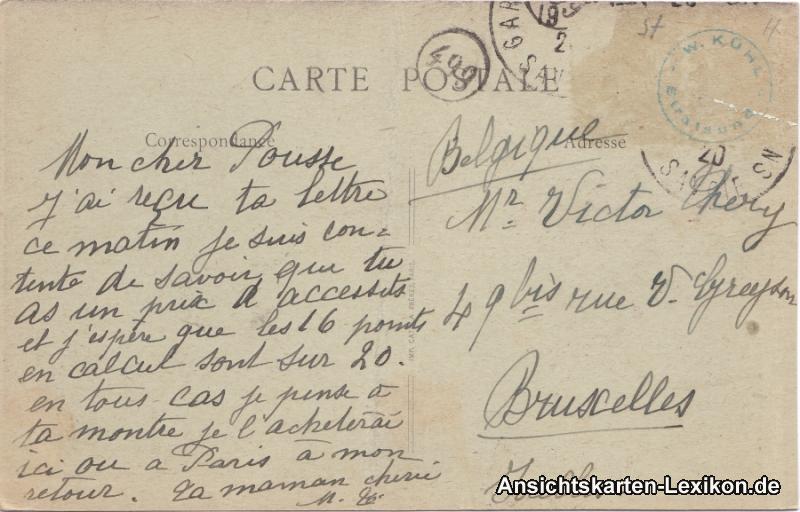 CARTE POSTALE
490
W. KÜHL
Stralsund
Correspondance
Adresse
Mon cher Pousse
J'ai reçu ta lettre
ce matin je suis con=
tente de savoir que tu
as un prix d accessits
et j'espère que les 16 points
en calcul sont sur 20.
en tous cas je pense a
ta montre je l'acheterai
ici ou a Paris à mon
retour. Ta maman cherie
Belgique
Mr Victor Thery
49 bis rue V. Greyson
Bruxelles
Ixelles
Ansichtskarten-Lexikon.de